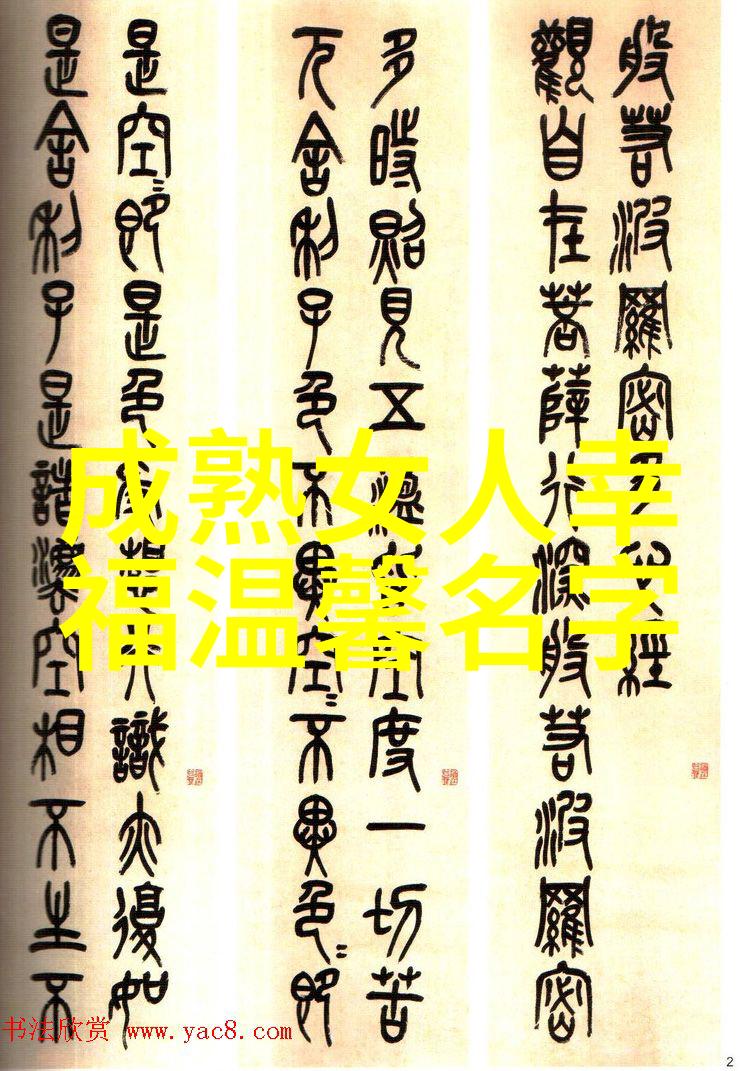 般若波羅密多心經
觀自在菩薩行深般若波羅密
多時照見五蘊皆空度一切苦
厄舍利子色不異空〻不異色〻即
是空〻即是色受想行識亦復如
是舍利子是諸灋空相不生不
成熟女人幸
福温馨名字
书法欣赏 www.yac8.com
2